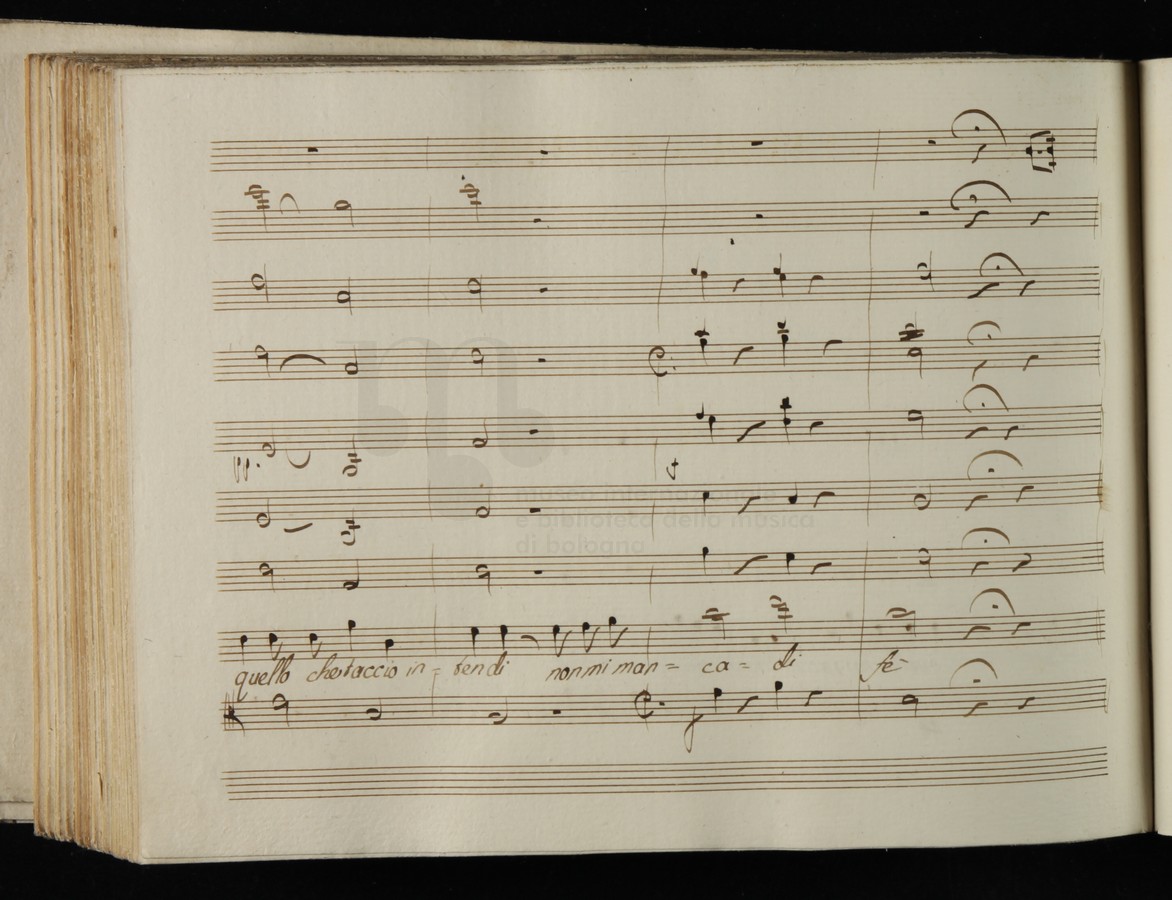 pp.
museo internazionale
e biblioteca della musica
di bologna
quello che taccio in = tendi non mi man = ca = di fe-